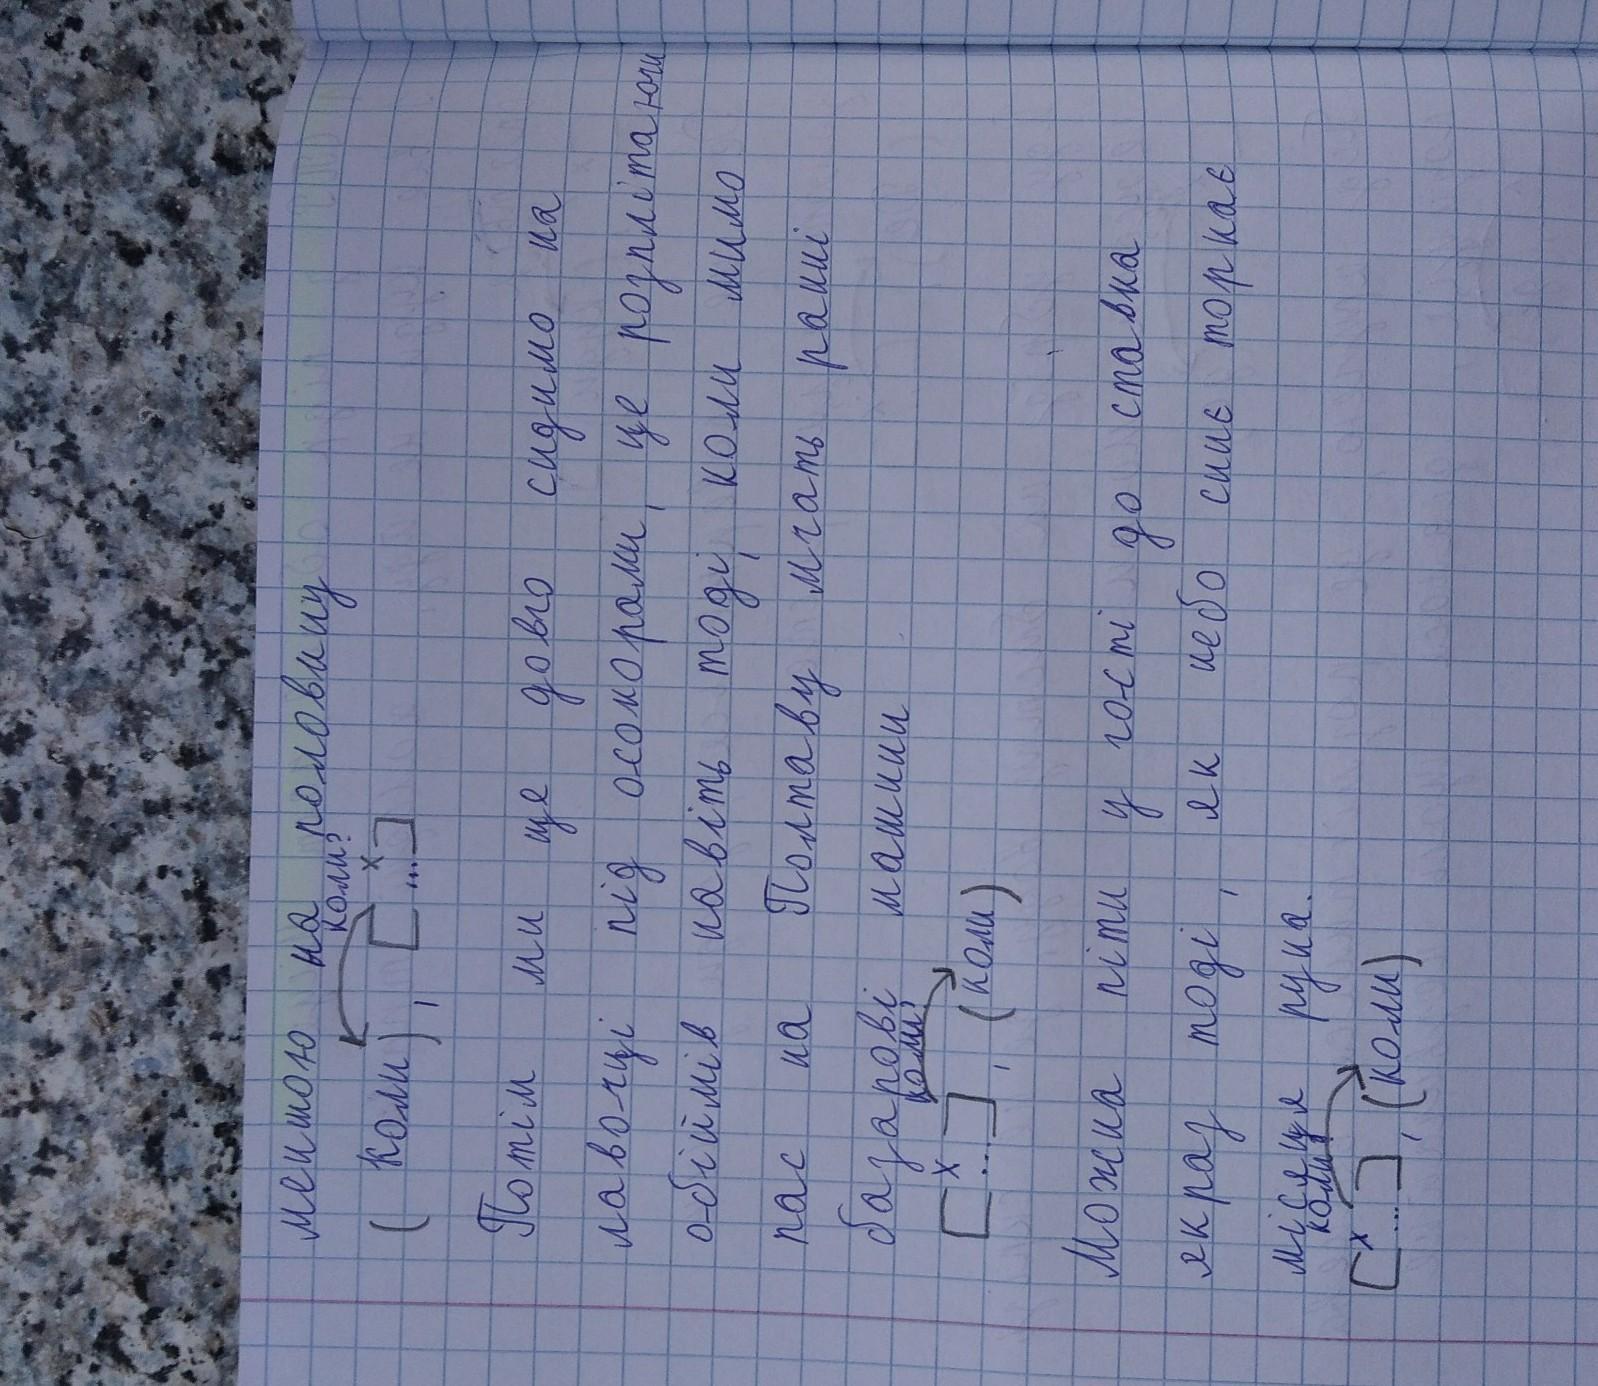 меншою на половину
коли?
( коли ) , [ ...х ]
Потім ми ще довго сидимо на
лавочці під осокорами, ще розплітаючи
обіймів навіть тоді, коли мимо
нас на Полтаву мчать ранні
базарові машини
коли?
[ х... ] , ( коли )
Можна піти у гості до ставка
якраз тоді , як небо синє торкає
місяця рука.
коли?
[ х... ] , ( коли )